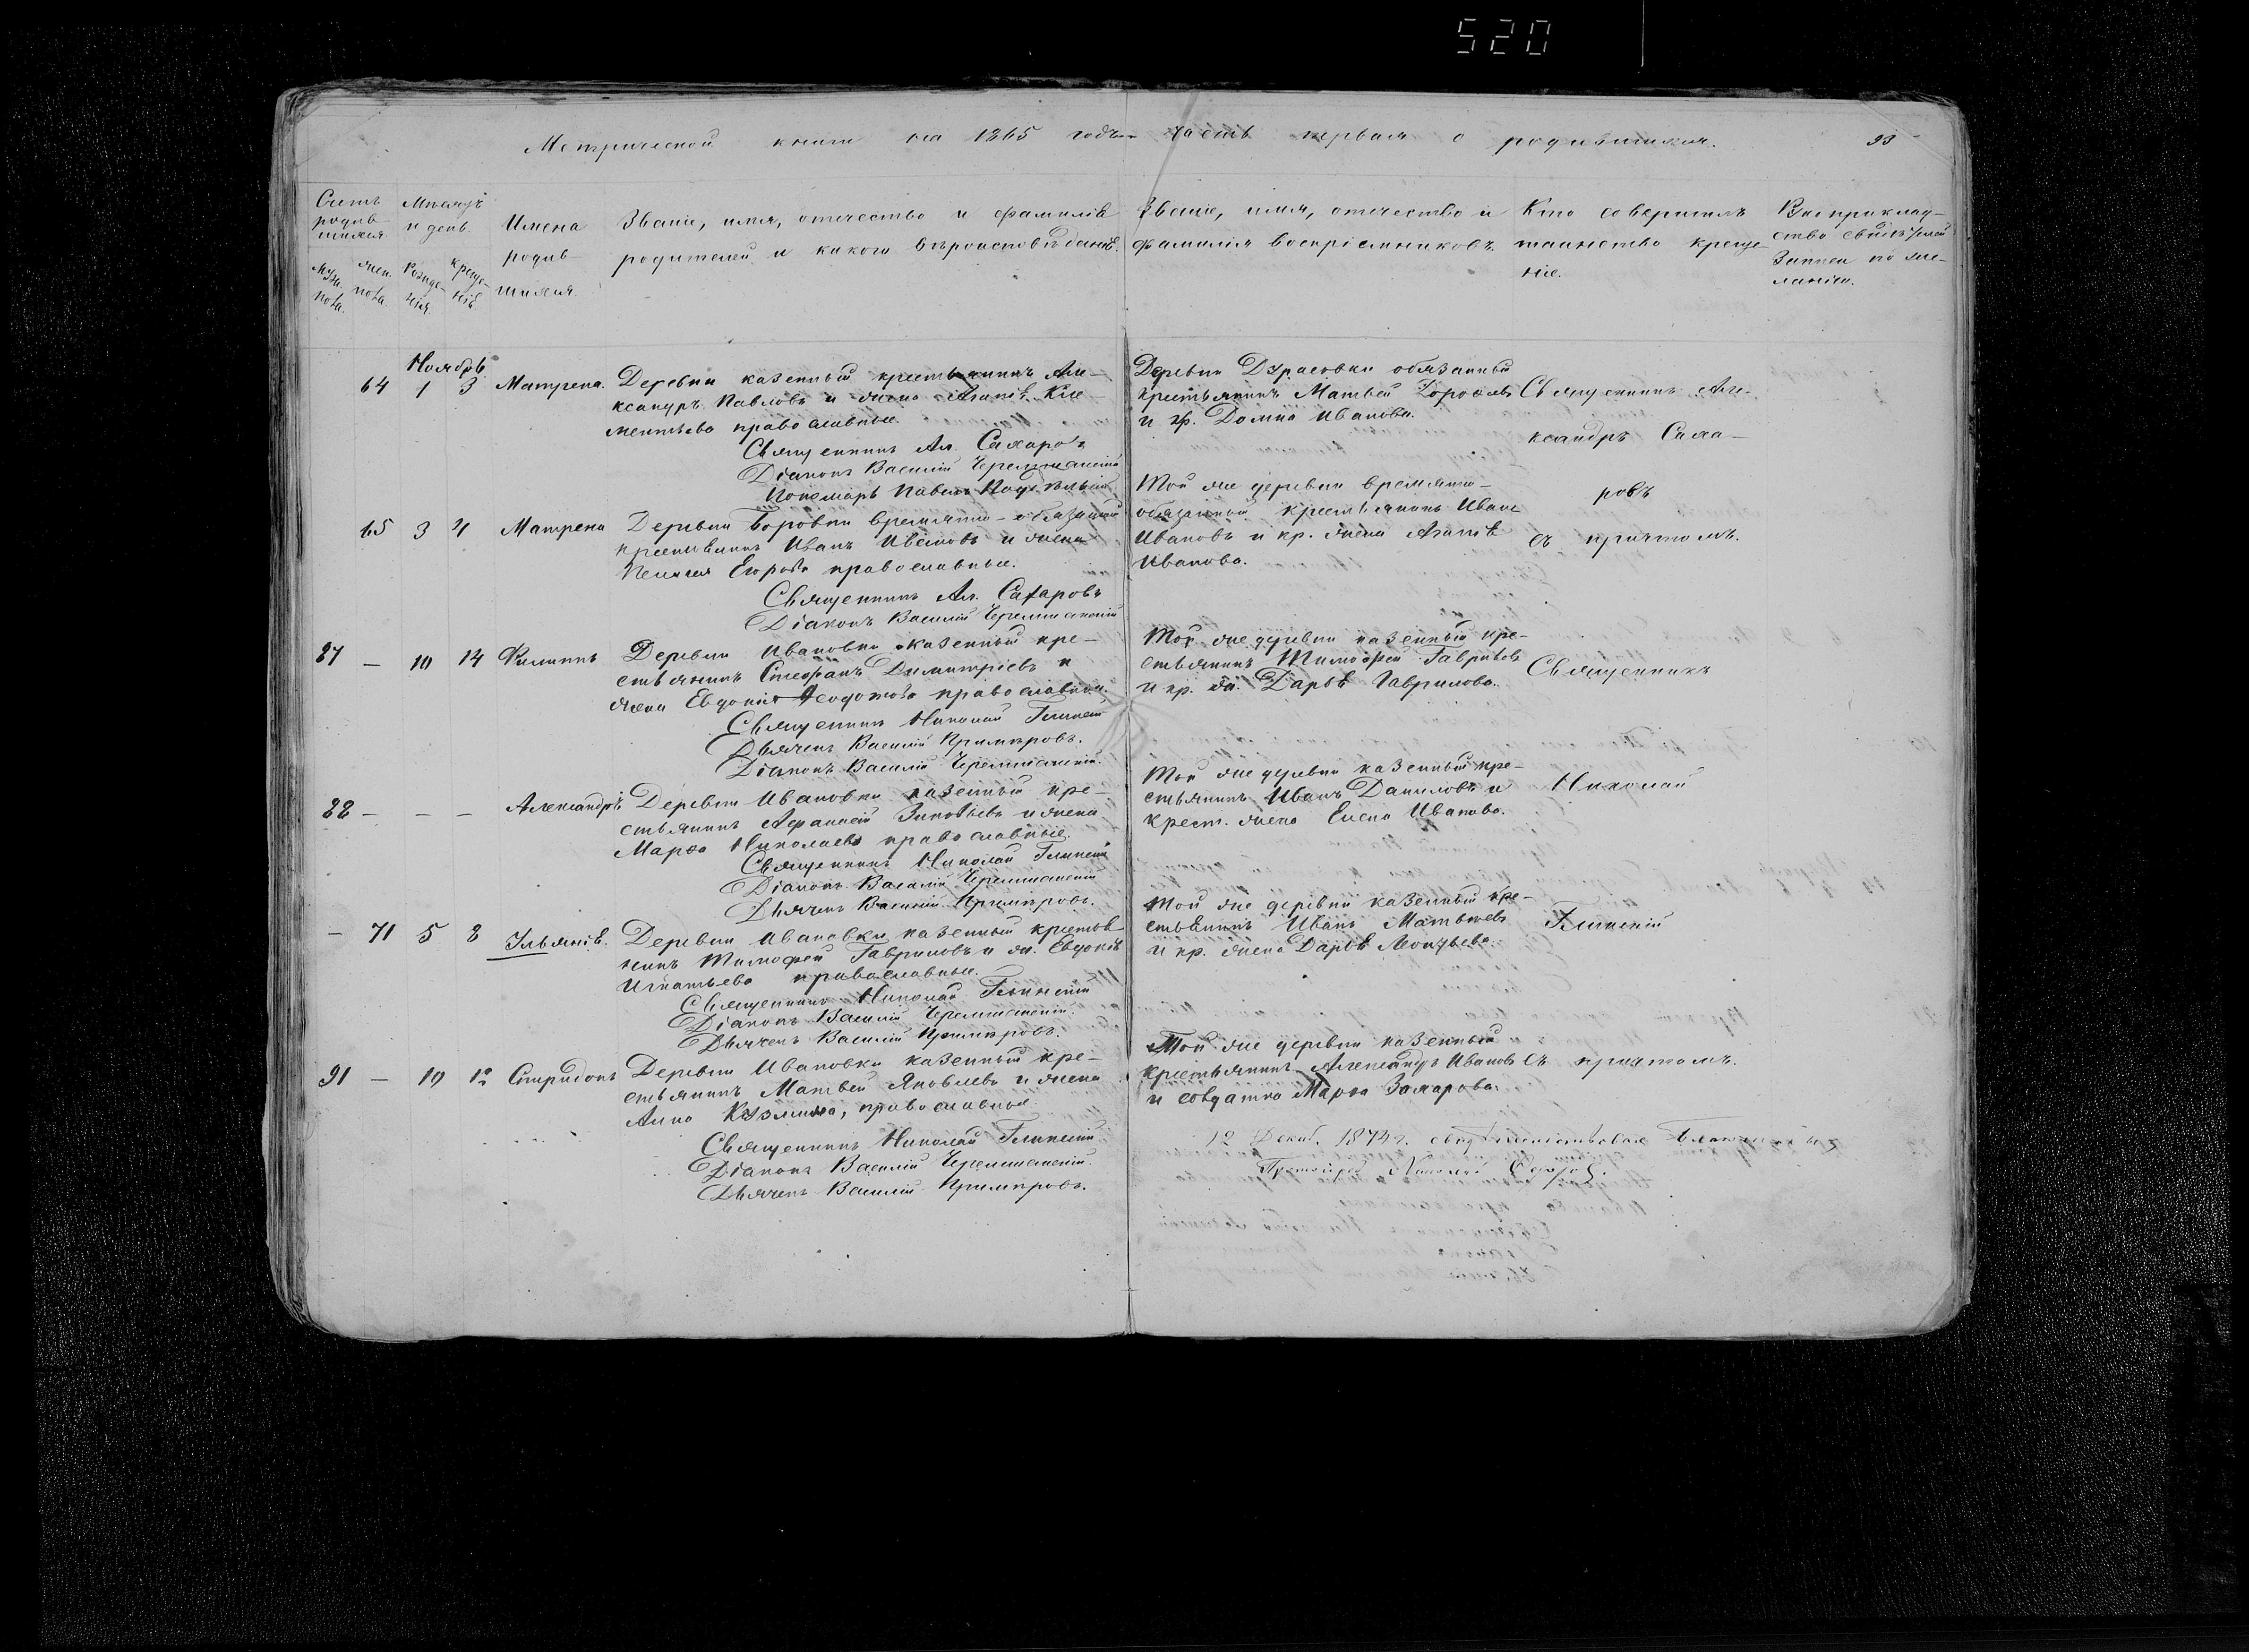 520
Метрической книги на 1865 годъ часть первая о родившихся.
93
Счетъ родив-шихся.
Мужеска пола.
Женска пола.
Мѣсяцъ и день.
Рожденія.
Крещенія.
Имена
родив-
шихся.
Званіе, имя, отечество и фамилія
родителей и какого вѣроисповѣданія.
Званіе, имя, отечество и
фамилія воспріемниковъ.
Кто совершилъ
таинство креще-
ніе.
Рукоприклад-
ство свидѣтелей
записи по же-
ланію.
Ноябрь
64 1 3 Матрена.
Деревни казенный крестьянинъ Але-
ксандръ Павловъ и жена Агапія Кле-
ментьева православные.
Священникъ Ал. Сахаровъ
Діаконъ Василій Черемшанскій
Пономарь Павелъ
Деревни обязанный
крестьянинъ Матвей
и кр. Домна Иванова.
Священникъ Але-
ксандръ Саха-
ровъ
съ причтомъ.
65 3 4 Матрена
Деревни Боровки временно-обязанный
крестьянинъ Иванъ Ивановъ и жена
Пелагея Егорова православные.
Священникъ Ал. Сахаровъ
Діаконъ Василій Черемшанскій
Той же деревни временно-
обязанной крестьянинъ Иванъ
Ивановъ и кр. жена Агапія
Иванова.
87 — 10 14 Филиппъ
Деревни Ивановки казенный кре-
стьянинъ Стефанъ Димитріевъ и
жена Евдокія Феодотова православные.
Священникъ Николай Глинскій
Дьячекъ Василій Примѣровъ.
Діаконъ Василій Черемшанскій.
Той же деревни казенный кре-
стьянинъ Тимофей Гавриловъ
и кр. ж. Дарья Гаврилова.
Священникъ
88 — — — Александръ
Деревни Ивановки казенный кре-
стьянинъ Афанасій Зиновьевъ и жена
Марфа Николаева православные.
Священникъ Николай Глинскій
Діаконъ Василій Черемшанскій
Дьячекъ Василій Примѣровъ.
Той же деревни казенный кре-
стьянинъ Иванъ Даниловъ и
крест. жена Елена Иванова.
Николай
— 71 5 8 Ульянія.
Деревни Ивановки казенный крестья-
нинъ Тимофей Гавриловъ и ж. Евдокія
Игнатьева православные.
Священникъ Николай Глинскій
Діаконъ Василій Черемшанскій.
Дьячекъ Василій Примѣровъ.
Той же деревни казенный кре-
стьянинъ Иванъ Матвеевъ
и кр. жена Дарья Леонтьева.
Глинскій
91 — 10 12 Спиридонъ
Деревни Ивановки казенный кре-
стьянинъ Матвей Яковлевъ и жена
Анна Кузмина, православные.
Священникъ Николай Глинскій
Діаконъ Василій Черемшанскій.
Дьячекъ Василій Примѣровъ.
Той же деревни казенный
крестьянинъ Александръ Ивановъ
и солдатка Марфа Захарова.
съ причтомъ.
12 Декаб. 1874 г. свидѣтельствовалъ Благочинный
Протоіерей Николай